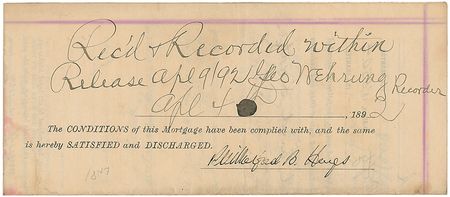 Rec'd & Recorded within
Release Apl 9/92 Geo Wehrung Recorder
Apl 4 , 1892
The CONDITIONS of this Mortgage have been complied with, and the same
is hereby SATISFIED and DISCHARGED.
Rutherford B. Hayes